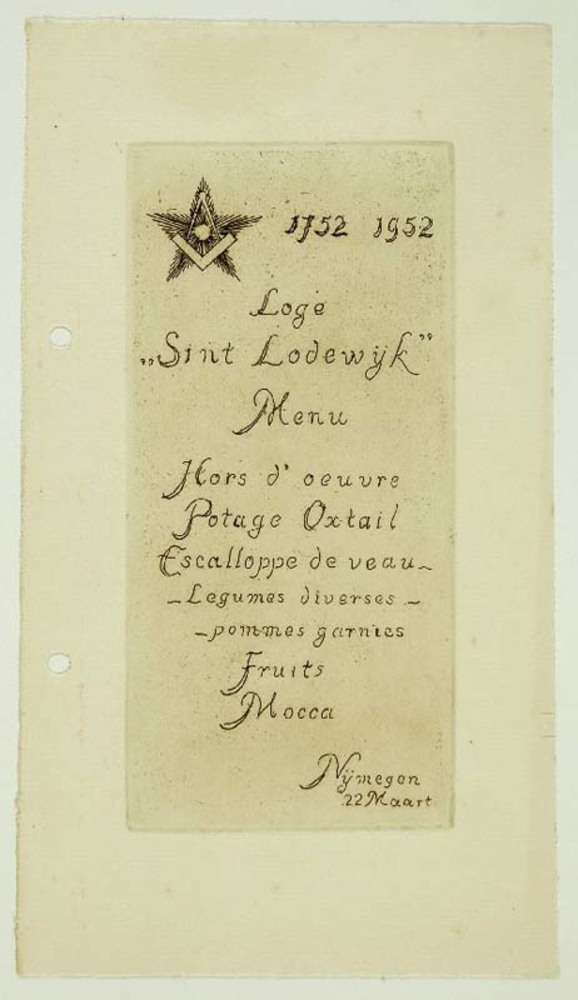 1752 1952
Loge
„Sint Lodewijk”
Menu
Hors d' oeuvre
Potage Oxtail
Escalloppe de veau~
~Legumes diverses~
~pommes garnies
Fruits
Mocca
Nijmegen
22 Maart